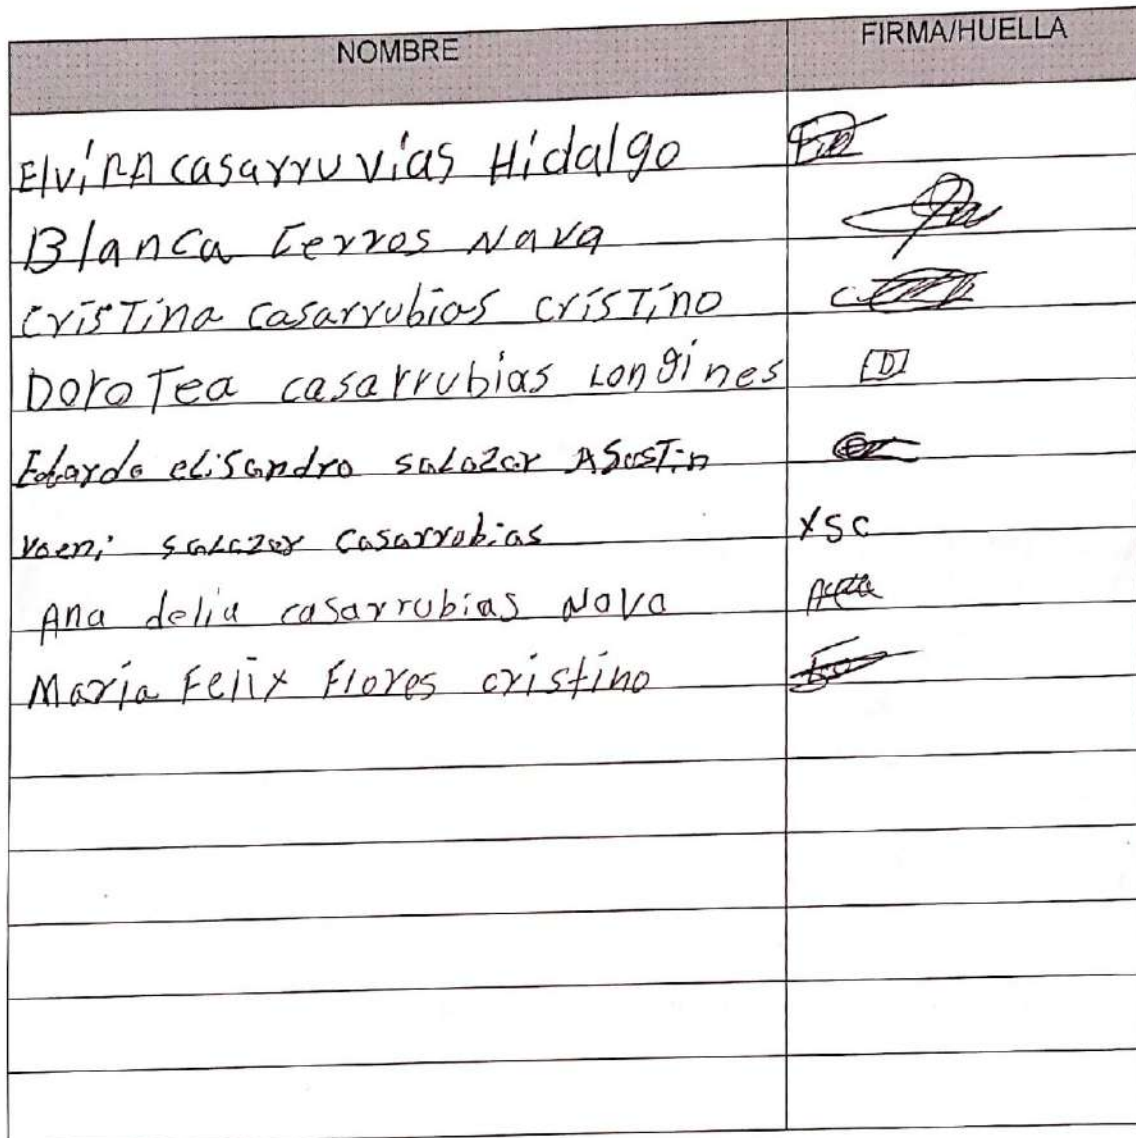 NOMBRE FIRMA/HUELLA
ElviRA casarruvias Hidalgo
Blanca Cerros Nava
crisTina casarrubias crisTino
DoroTea casarrubias Longines D
elisandro salazar
salazar casarrubias YSC
Ana delia casarrubias Nava
Maria Felix Flores cristino